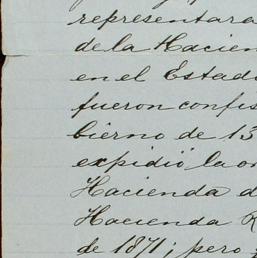 representara
de la Hacien
en el Estado
fueron confis
bierno de 13
expidió la or
Hacienda d
Hacienda R
de 1871; pero